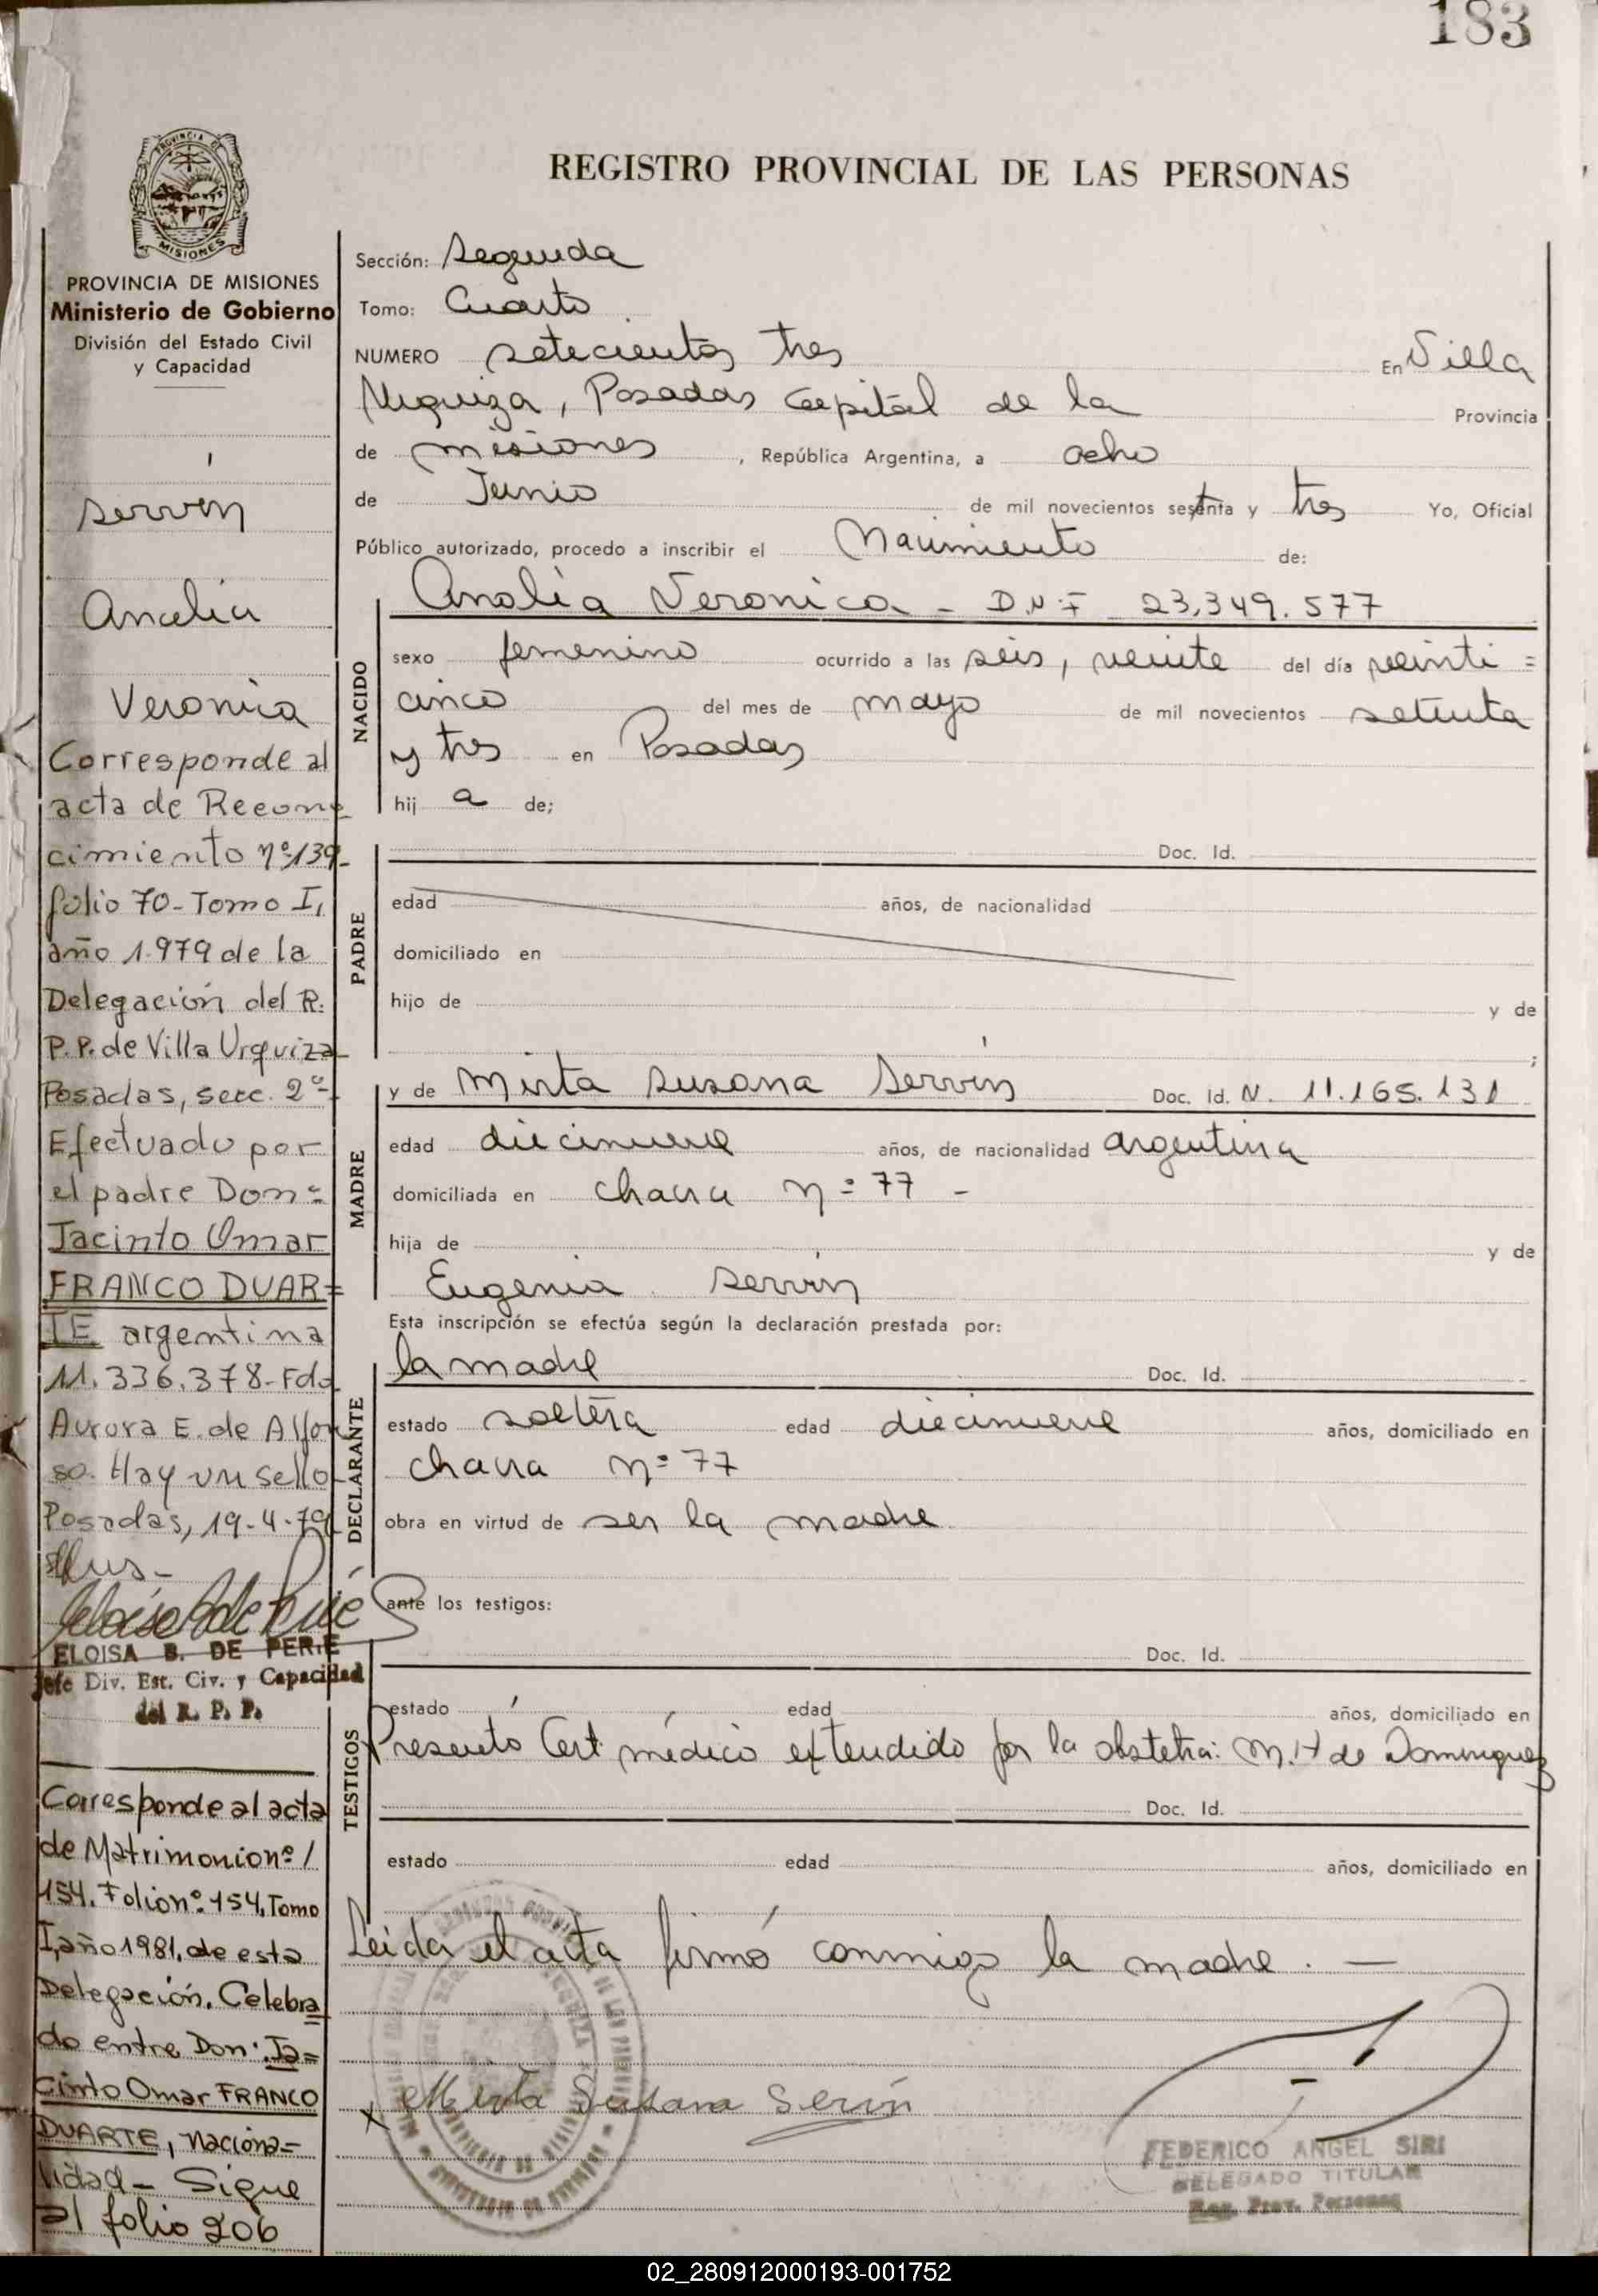 183
PROVINCIA DE
MISIONES
PROVINCIA DE MISIONES
Ministerio de Gobierno
División del Estado Civil
y Capacidad
Servín
Analia
Veronica
Corresponde al
acta de Recono
cimiento nº 139-
folio 70-Tomo I,
año 1.979 de la
Delegación del R.
P.P. de Villa Urquiza
Posadas, secc. 2º-
Efectuado por
el padre Don=
Jacinto Omar
FRANCO DUAR=
TE argentina
11.336.378-Fdo
Aurora E. de Alfon
so. Hay un sello
Posadas, 19-4-79
ELOISA B. DE PERIE
Jefe Div. Est. Civ. y Capacidad
del R. P. P.
Corresponde al acta
de Matrimonio nº /
154. Folio nº 154, Tomo
I, año 1981, de esta
Delegación. Celebra
do entre Don: Ja=
cinto Omar FRANCO
DUARTE, naciona=
lidad - Sigue
al folio 206
REGISTRO PROVINCIAL DE LAS PERSONAS
Sección: Segunda
Tomo: Cuarto
NUMERO setecientos tres En Villa
Urquiza, Posadas Capital de la Provincia
de Misiones, República Argentina, a ocho
de Junio de mil novecientos setenta y tres Yo, Oficial
Público autorizado, procedo a inscribir el Nacimiento de:
Analía Veronica - D.N.I 23.349.577
NACIDO
sexo femenino ocurrido a las seis, veinte del día veinti=
cinco del mes de mayo de mil novecientos setenta
y tres en Posadas
hij a de;
PADRE
Doc. Id.
edad años, de nacionalidad
domiciliado en
hijo de y de
;
MADRE
y de Mirta Susana Servín Doc. Id. N. 11.165.131
edad diecinueve años, de nacionalidad argentina
domiciliada en chacra nº 77 -
hija de y de
Eugenia Servín
Esta inscripción se efectúa según la declaración prestada por:
DECLARANTE
la madre Doc. Id.
estado soltera edad diecinueve años, domiciliado en
chacra nº 77
obra en virtud de ser la madre
ante los testigos:
TESTIGOS
Doc. Id.
estado edad años, domiciliado en
Presentó Cert. médico extendido por la obstetra: M. H de Dominguez
Doc. Id.
estado edad años, domiciliado en
Leida el acta firmó conmigo la madre. —
x Mirta Susana Servín
FEDERICO ANGEL SIRI
DELEGADO TITULAR
Reg. Prov. Personas
02_280912000193-001752